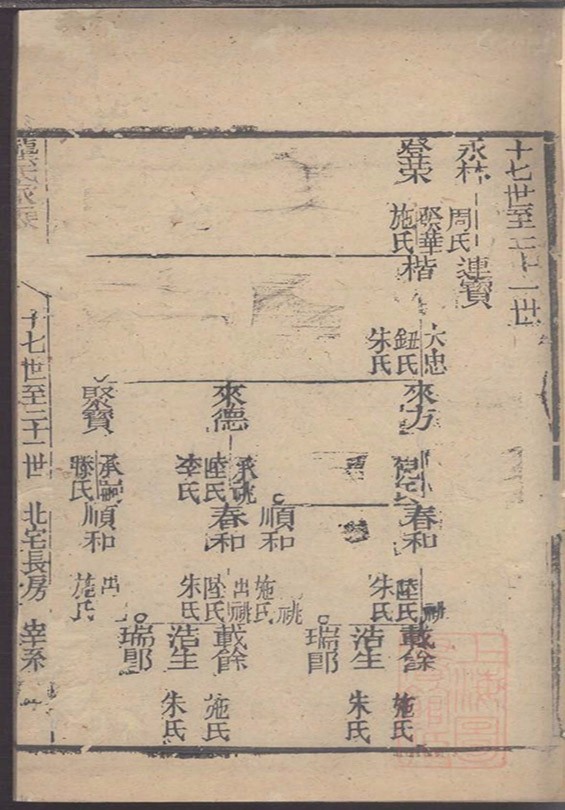 十七世至二十一世
永林
周氏
連寶
登荣
聚華
施氏
楷
大忠
鈕氏
朱氏
來方
春和
祧
陸氏
朱氏
載餘
施氏
浩生
朱氏
瑞郎
來德
承祧
陸氏
李氏
順和
施氏
祧
春和
出祧
陸氏
朱氏
載餘
施氏
浩生
朱氏
瑞郎
聚寶
承嗣
滕氏
順和
出
施氏
十七世至二十一世
北宅長房
宰系